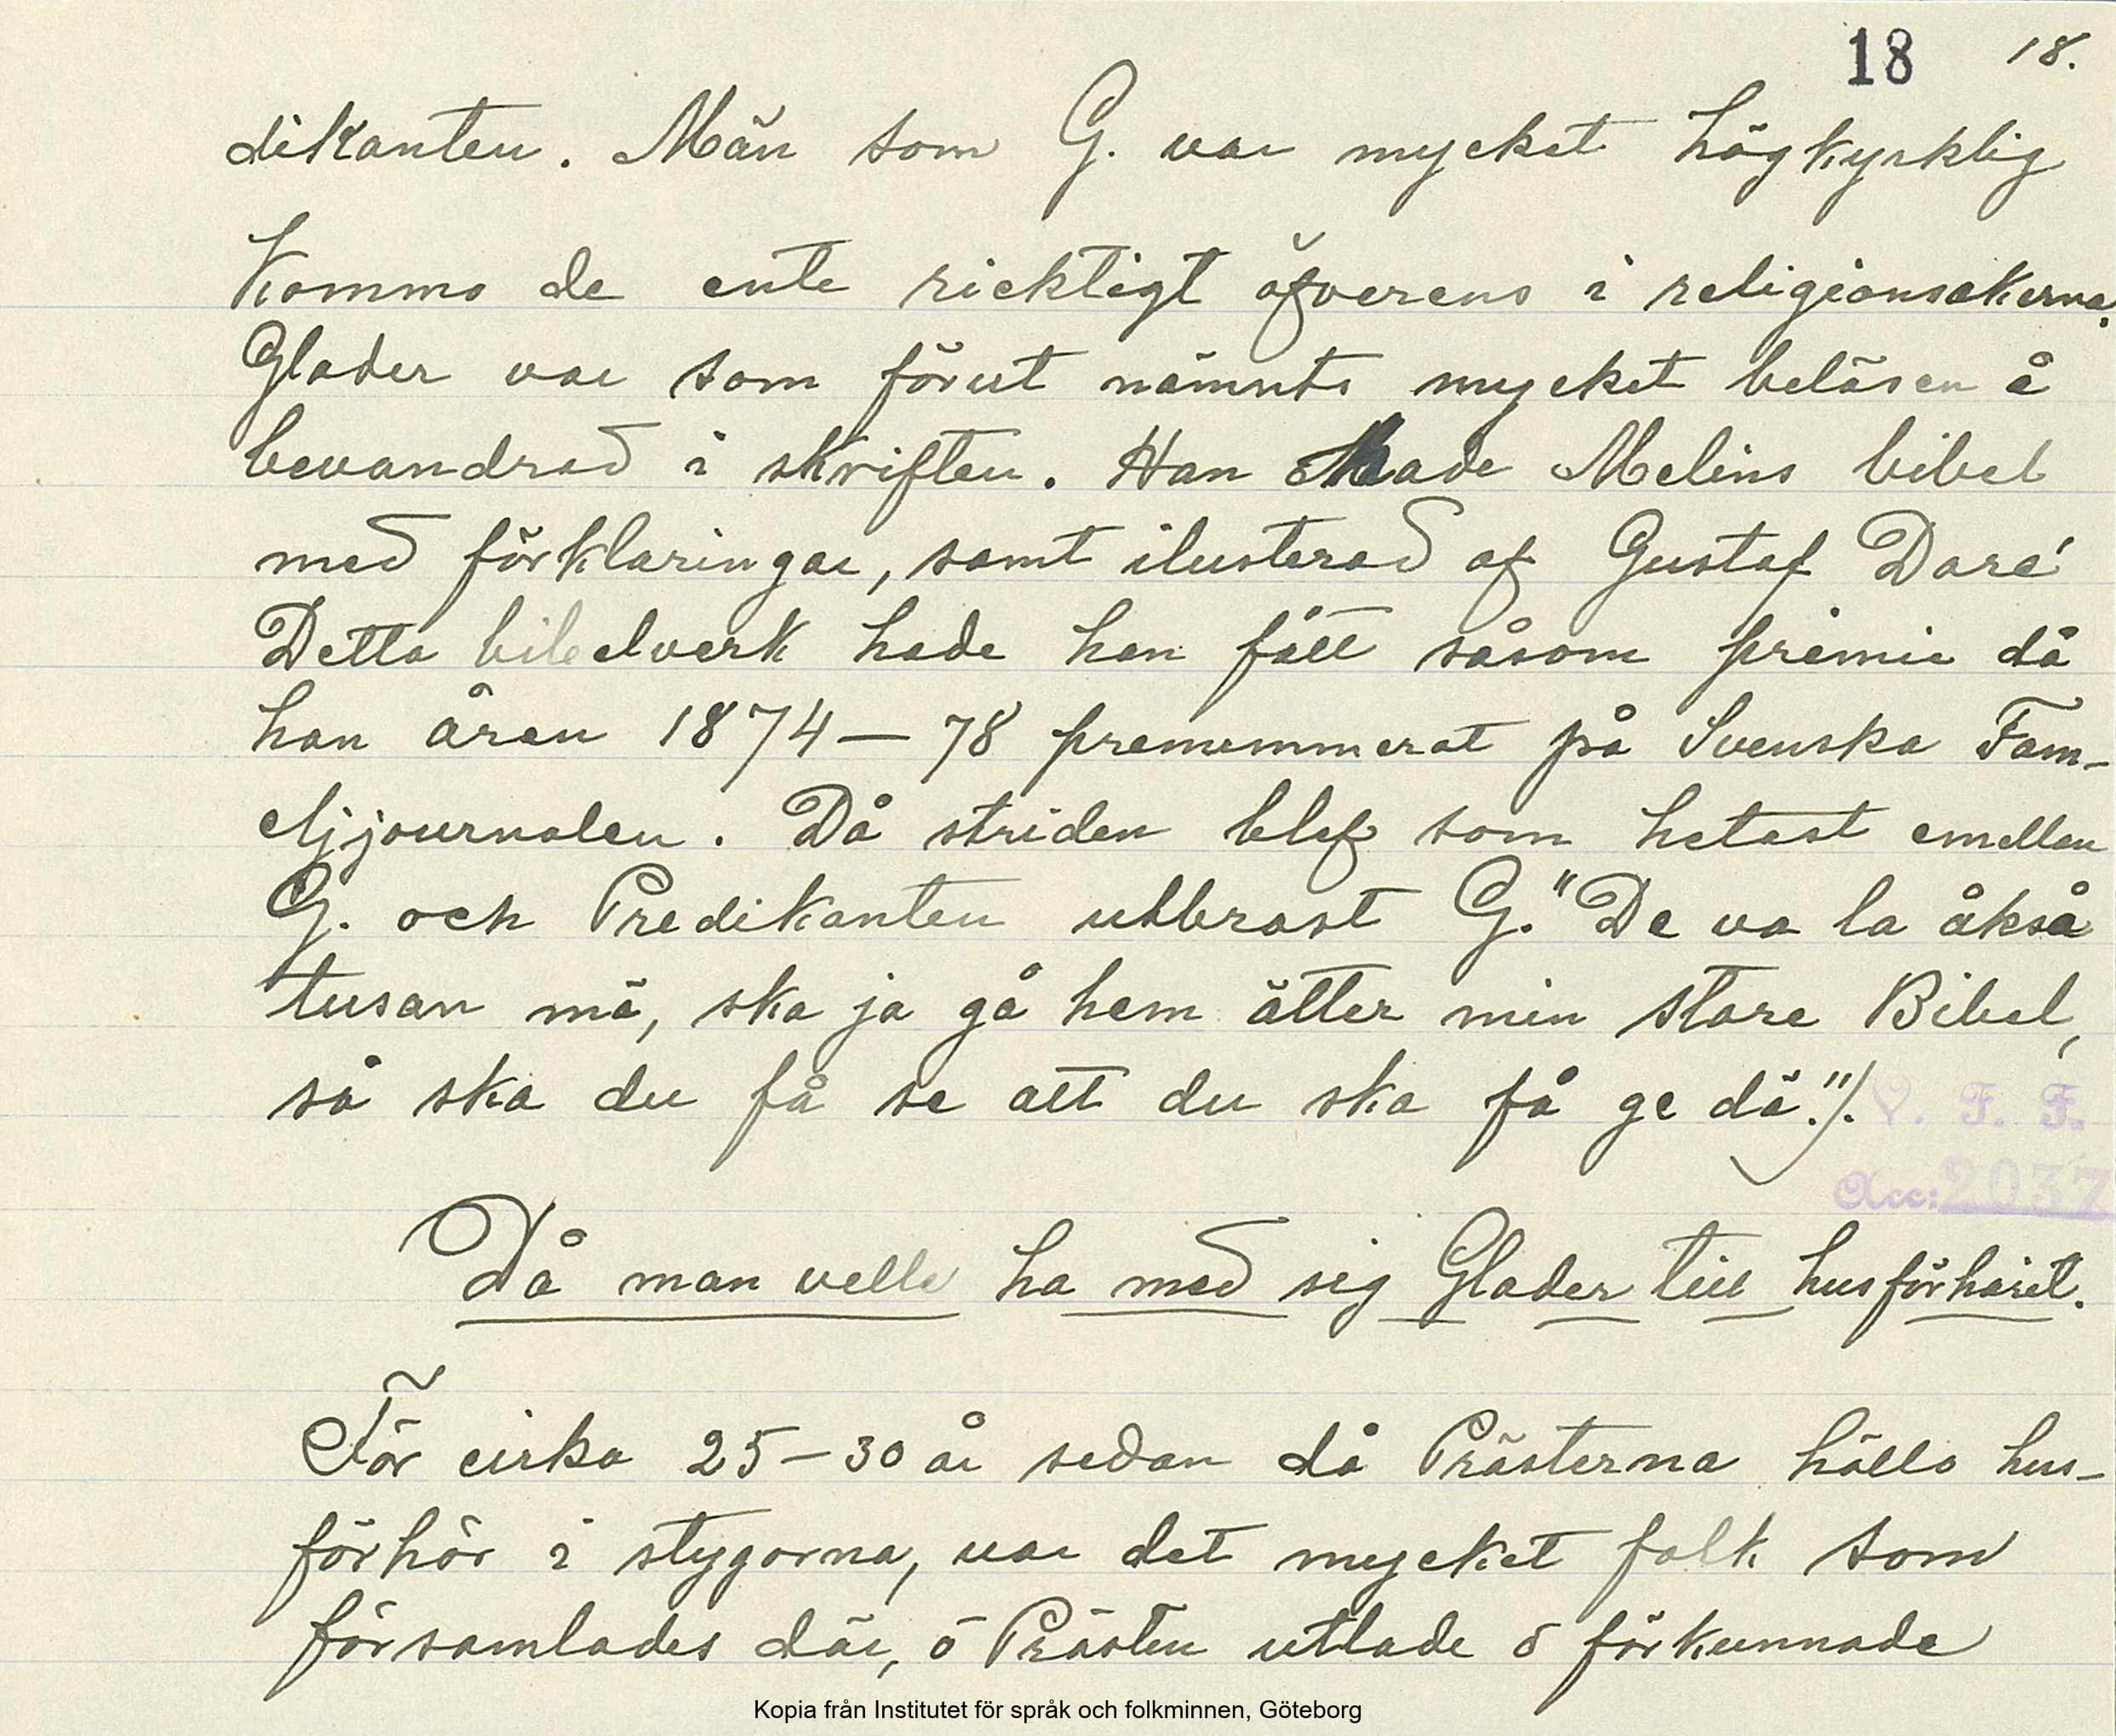 18 18.
dikanten. Män som G. var mycket högkyrklig
kommo de ente ricktigt öfverens i religionsakerna.
Glader var som förut nämnts mycket beläsen å
bevandrad i skriften. Han hade Melins bibel
med förklaringar, samt ilusterad af Gustaf Doré
Detta bibelverk hade han fått såsom premie då
han åren 1874–78 premummerat på Svenska Fam-
eljjournalen. Då striden blef som hetast emellan
G. och Predikanten utbrast G. "De va la åkså
tusan mä, ska ja gå hem ätter min store Bibel,
så ska du få se att du ska få ge dä."/.
V. F. F.
Acc: 2037
Då man velle ha med sig Glader till husförhöret.
För cirka 25–30 år sedan då Prästerna höllo hus-
förhör i stygorna, var det mycket folk som
församlades där, ö Prästen utlade ö förkunnade
Kopia från Institutet för språk och folkminnen, Göteborg